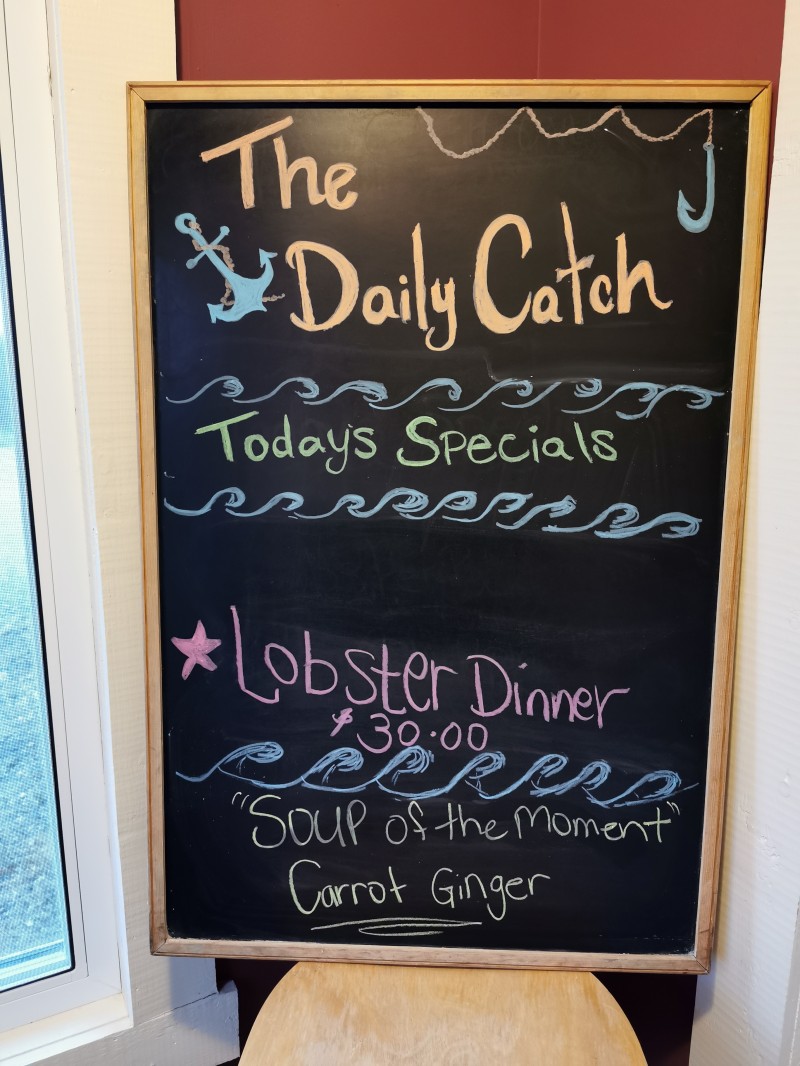 The
Daily Catch
Todays Specials
Lobster Dinner
$30.00
"Soup of the Moment"
Carrot Ginger